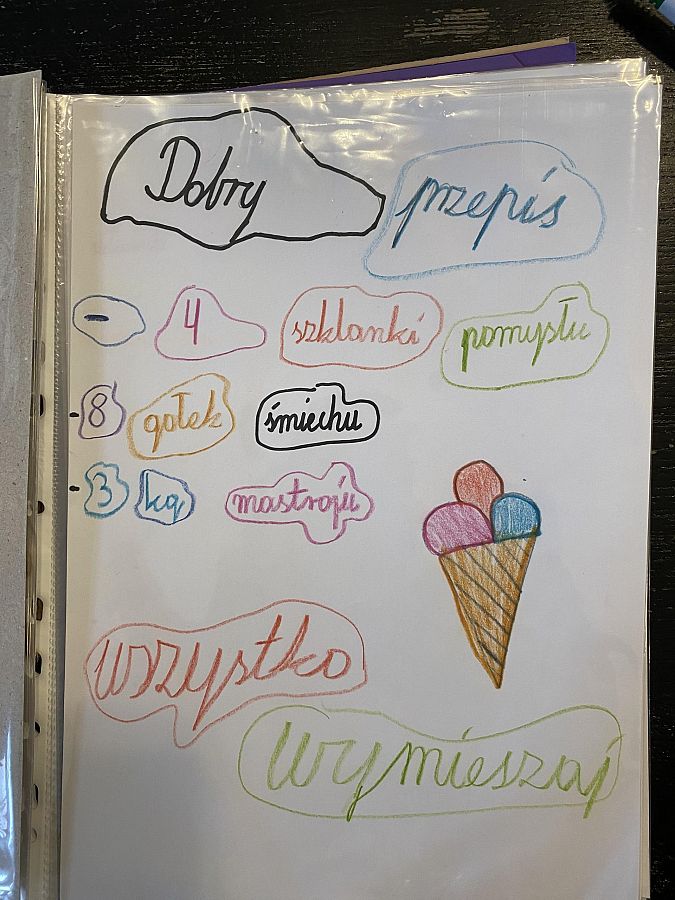 Dobry przepis
- 4 szklanki pomysłu
- 8 gałek śmiechu
- 3 kg nastroju
wszystko
wymieszaj